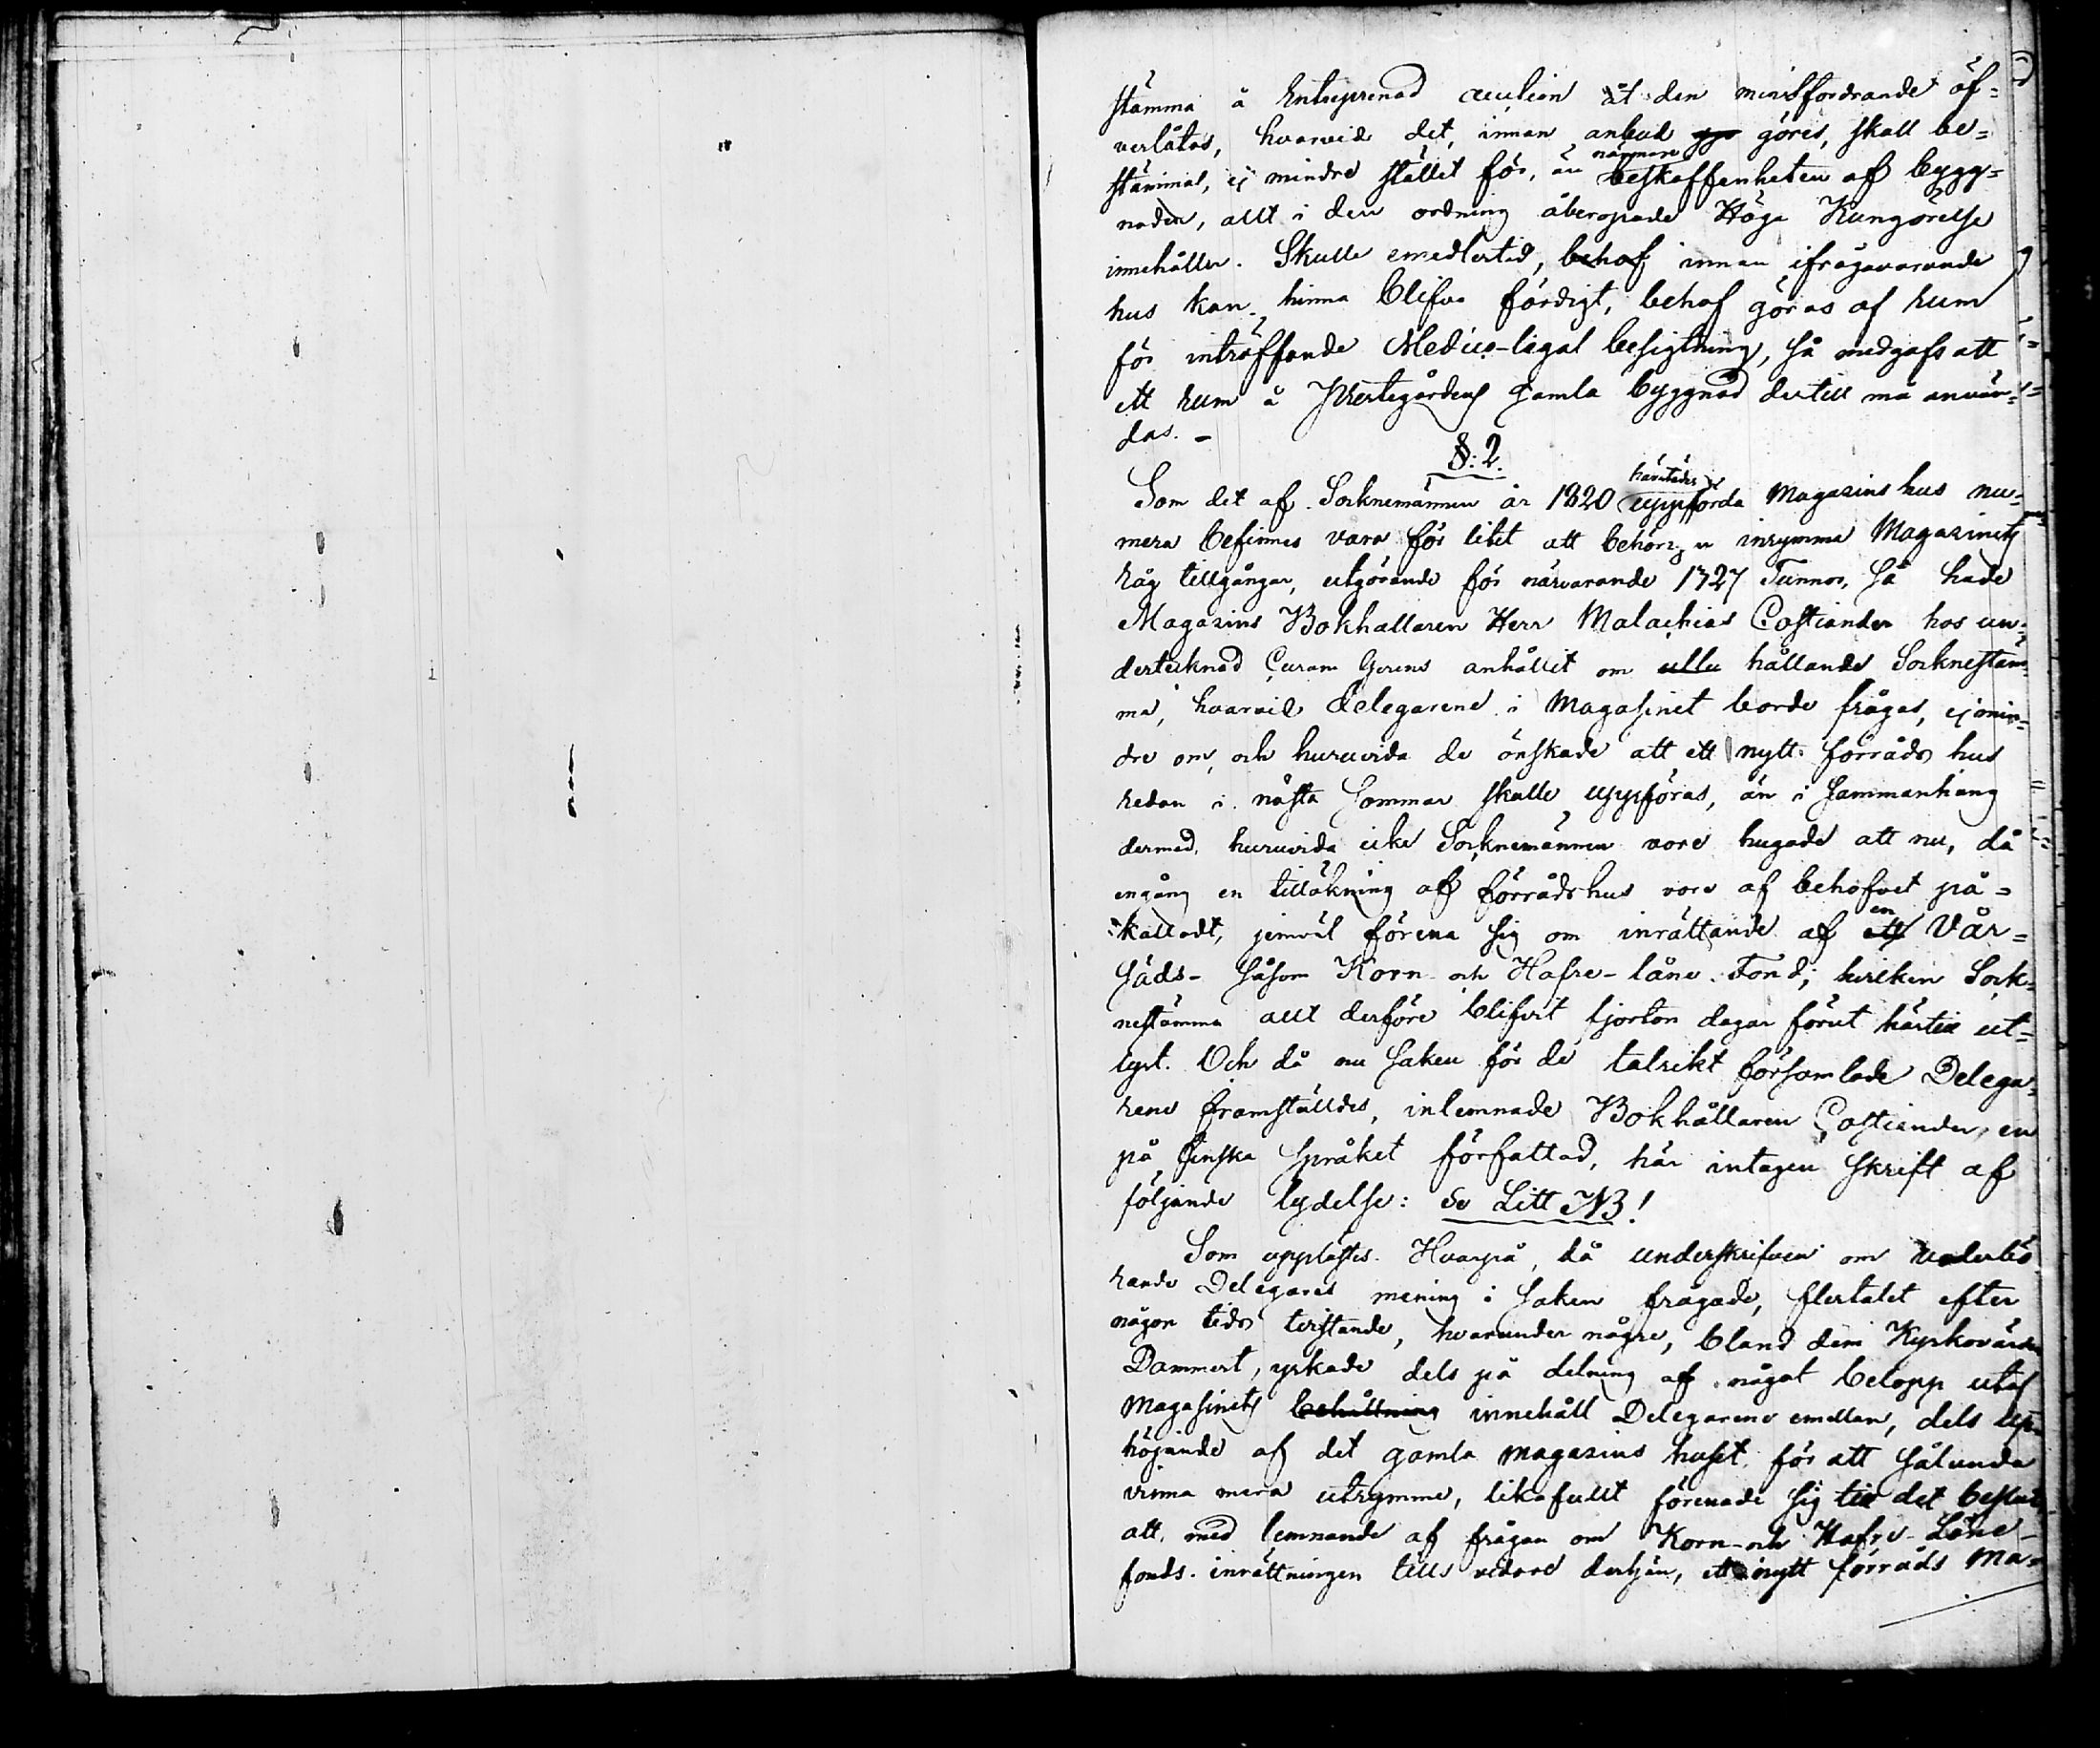 stämma å Entreprenad auction åt den minstfordrande öf=
verlåtas, hvarvid det, innan anbud göres, skall be=
stämmas, ej mindre stället för, än närmare beskaffenheten af bygg=
naden, allt i den ordning åberopade Höga Kungörelse
innehåller. Skulle emedlertid, behof innan ifrågavarande
hus kan hinna blifva färdigt, behof göras af rum
för inträffande Medico-legal besigtning, så medgafs att
ett rum å Prestegårdens gamla byggnad dertill må använ=
das. –
§: 2.
Som det af Socknemännen år 1820 härstädes uppförda Magasins hus nu=
mera befinnes vara för litet att behörigen inrymma Magasinets
råg tillgångar, utgörande för närvarande 1327 Tunnor, så hade
Magasins Bokhållaren Herr Malachias Costiander hos un=
dertecknad Curam Gerens anhållit om hållande Socknestäm=
ma, hvarvid delegarene i Magasinet borde frågas, ej min=
dre om, och huruvida de önskade att ett nytt förråds hus
redan i nästa Sommar skulle uppföras, än i sammanhang
dermed, huruvida icke Socknemännen vore hugade att nu, då
engång en tillökning af förrådshus vore af behofvet på=
kalladt, jemväl förena sig om inrättande af ett en Vår=
säds- såsom Korn- och Hafre-låne-Fond; hvilken Sock=
nestämma allt derföre blifvit fjorton dagar förut härtill ut=
lyst. Och då nu saken för de talrikt församlade Delega=
rene framställdes, inlemnade Bokhållaren Costiander, en
på finska språket författad, här intagen skrift af
följande lydelse: Se Litt NB!
Som upplästes. Hvarpå, då underskrifven om vederbö
rande Delegares mening i saken frågade, flertalet efter
någon tids tvistande, hvarunder några, bland dem Kyrkovärden
Dammert, yrkade dels på delning af något belopp utaf
Magasinets behållning innehåll Delegarene emellan, dels up=
höjande af det gamla magasins huset för att sålunda
vinna mera utrymme, likafullt förenade sig till det beslut
att, med lemnande af frågan om Korn- och Hafre-Låne-
fonds-inrättningen tills vidare derhän, ett nytt förråds Ma=